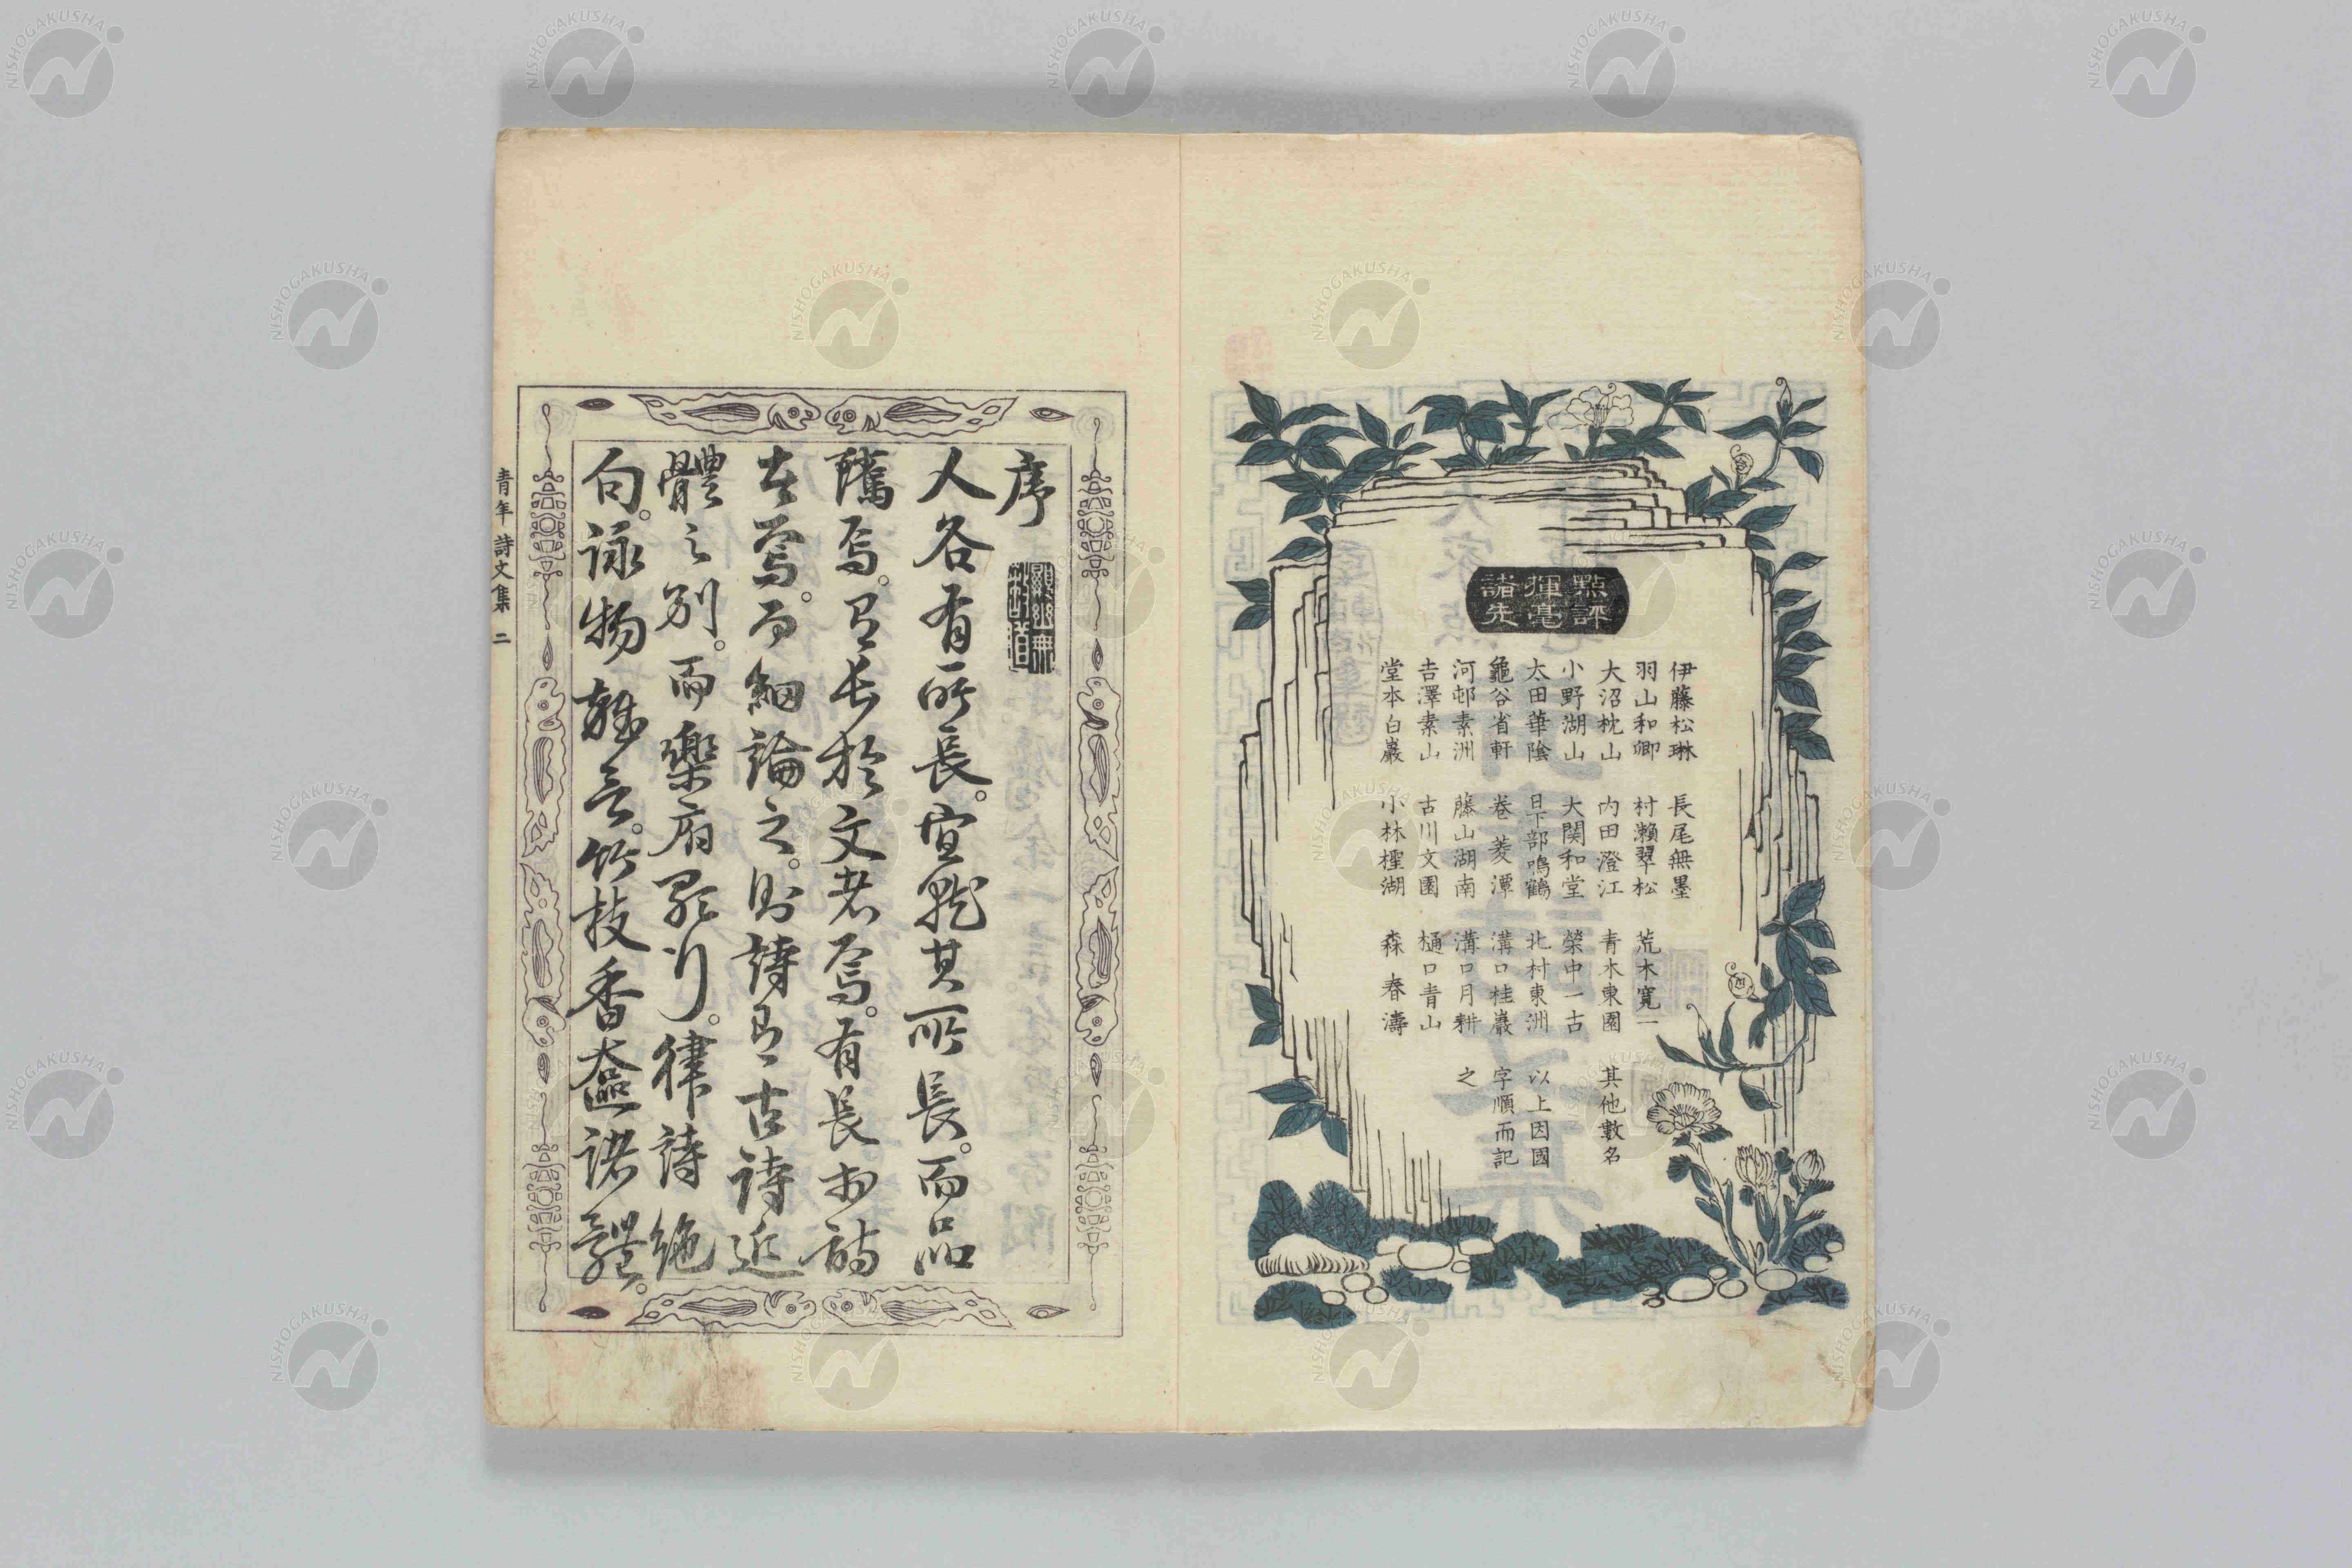 點評
揮毫
諸先
伊藤松琳 長尾無墨
羽山和卿 村瀨翠松 荒木寛一
大沼枕山 内田澄江 青木東園 其他數名
小野湖山 大関和堂 榮中一古
太田華陰 日下部鳴鶴 北村東洲 以上因國
龜谷省軒 卷菱潭 溝口桂巖 字順而記
河邨素洲 藤山湖南 溝口月耕 之
吉澤素山 古川文園 樋口青山
堂本白巖 小林檉湖 森春濤
序
人各有所長。宜就其所長。而品
隲焉。有長於文者焉。有長於詩
者焉。而細論之。則詩有古詩近
體之別。而樂府歌行。律詩絶
句。詠物雜言。竹枝香奩諸體。
青年詩文集 二
NISHOGAKUSHA